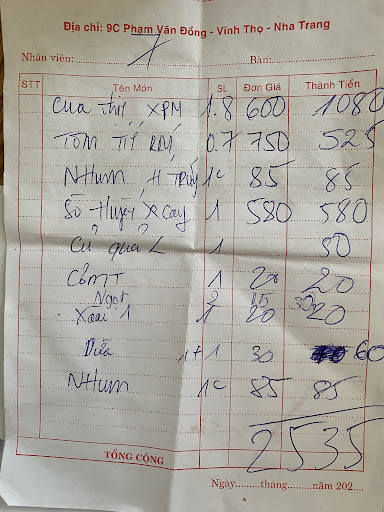 Địa chỉ: 9C Phạm Văn Đồng - Vĩnh Thọ - Nha Trang
Nhân viên: Bàn:
STT Tên Món SL Đơn Giá Thành Tiền
Cua thịt XPM 1.8 600 1080
Tôm Tít RM 0.7 750 525
NHum H Trứng 1c 85 85
Sò Huyết X Cay 1 580 580
Củ quả L 1 50
Cơm T 1 20 20
Ngọt 2 15 30
Xoài 1 1 20 20
Dừa 1+1 30 60
NHum 1c 85 85
2535
TỔNG CỘNG
Ngày.........tháng.........năm 202....